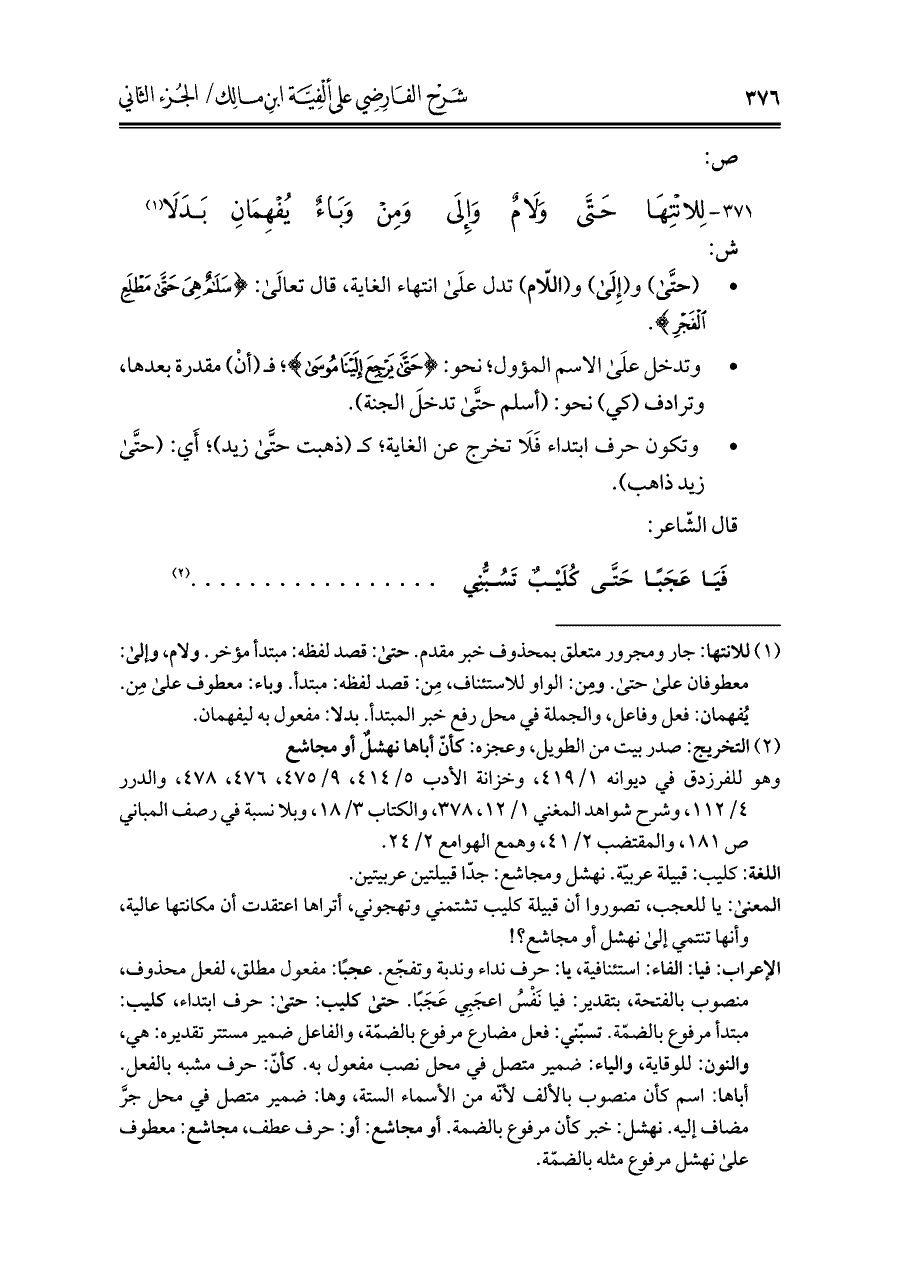 ٣٧٦ شَرْح الفَارِضِي على ألْفِيَّة ابنِ مالِك/ الجُزء الثاني
ص:
٣٧١- لِلانْتِهَا حَتَّى وَلَامٌ وَإِلَى وَمِنْ وَبَاءٌ يُفْهِمَانِ بَدَلَا(١)
ش:
• (حتَّىٰ) و(إِلَىٰ) و(اللّام) تدل علَىٰ انتهاء الغاية، قال تعالَىٰ: ﴿سَلَٰمٌ هِىَ حَتَّىٰ مَطْلَعِ
ٱلْفَجْرِ﴾.
• وتدخل علَىٰ الاسم المؤول؛ نحو: ﴿حَتَّىٰ يَرْجِعَ إِلَيْنَا مُوسَىٰ﴾؛ فـ (أنْ) مقدرة بعدها،
وترادف (كي) نحو: (أسلم حتَّىٰ تدخلَ الجنة).
• وتكون حرف ابتداء فَلَا تخرج عن الغاية؛ كـ (ذهبت حتَّىٰ زيد)؛ أَي: (حتَّىٰ
زيد ذاهب).
قال الشّاعر:
فَيَا عَجَبًا حَتَّى كُلَيْبٌ تَسُبُّنِي . . . . . . . . . . . . . . . . .(٢)
(١) للانتها: جار ومجرور متعلق بمحذوف خبر مقدم. حتىٰ: قصد لفظه: مبتدأ مؤخر. ولام، وإلىٰ:
معطوفان علىٰ حتىٰ. ومِن: الواو للاستئناف، مِن: قصد لفظه: مبتدأ. وباء: معطوف علىٰ مِن.
يُفهمان: فعل وفاعل، والجملة في محل رفع خبر المبتدأ. بدلا: مفعول به ليفهمان.
(٢) التخريج: صدر بيت من الطويل، وعجزه: كأنّ أباها نهشلٌ أو مجاشع
وهو للفرزدق في ديوانه ١/ ٤١٩، وخزانة الأدب ٥/ ٤١٤، ٩/ ٤٧٥، ٤٧٦، ٤٧٨، والدرر
٤/ ١١٢، وشرح شواهد المغني ١/ ١٢، ٣٧٨، والكتاب ٣/ ١٨، وبلا نسبة في رصف المباني
ص ١٨١، والمقتضب ٢/ ٤١، وهمع الهوامع ٢/ ٢٤.
اللغة: كليب: قبيلة عربيّة. نهشل ومجاشع: جدّا قبيلتين عربيتين.
المعنىٰ: يا للعجب، تصوروا أن قبيلة كليب تشتمني وتهجوني، أتراها اعتقدت أن مكانتها عالية،
وأنها تنتمي إلىٰ نهشل أو مجاشع؟!
الإعراب: فيا: الفاء: استئنافية، يا: حرف نداء وندبة وتفجّع. عجبًا: مفعول مطلق، لفعل محذوف،
منصوب بالفتحة، بتقدير: فيا نَفْسُ اعجَبِي عَجَبًا. حتىٰ كليب: حتىٰ: حرف ابتداء، كليب:
مبتدأ مرفوع بالضمّة. تسبّني: فعل مضارع مرفوع بالضمّة، والفاعل ضمير مستتر تقديره: هي،
والنون: للوقاية، والياء: ضمير متصل في محل نصب مفعول به. كأنّ: حرف مشبه بالفعل.
أباها: اسم كأن منصوب بالألف لأنّه من الأسماء الستة، وها: ضمير متصل في محل جرَّ
مضاف إليه. نهشل: خبر كأن مرفوع بالضمة. أو مجاشع: أو: حرف عطف، مجاشع: معطوف
علىٰ نهشل مرفوع مثله بالضمّة.